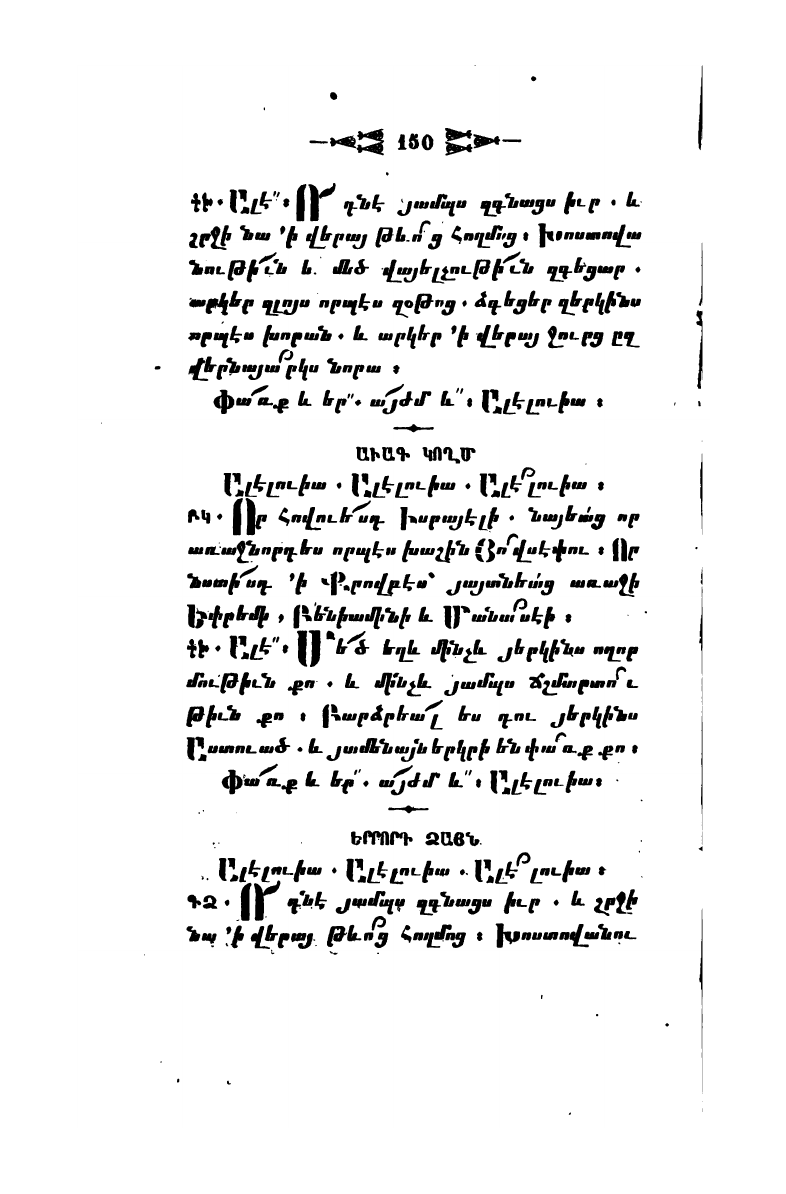 150
ԴԻ · Ալէ՛՛ ։ Ո՜ դնէ յամպս զգնացս իւր · և
շրջի նա ՚ի վերայ թևո՟ց հողմոց ։ Խոստովա
նութի՜ւն և մեծ վայելչութի՜ւն զգեցար ·
արկեր զլոյս որպէս զօթոց · ձգեցեր զերկինս
որպէս խորան · և արկեր ՚ի վերայ ջուրց ըզ
վերնայա՟րկս նորա ։
Փա՜ռք և եր՛՛ · ա՜յժմ և՛՛ ։ Ալէլուիա ։
ԱՒԱԳ ԿՈՂՄ
Ալէլուիա · Ալէլուիա · Ալէ՟լուիա ։
ԲԿ · Որ հովուե՜սդ Իսրայէլի · նայեա՛ց որ
առաջնորդես որպէս խաշին Յո՟վսէփու ։ Որ
նստի՜սդ ՚ի Քրովբէս՝ յայտնեա՛ց առաջի
Եփրեմի , Բենիամինի և Մանասէի ։
ԴԻ · Ալէ՛՛ ։ Մե՜ծ եղև մինչև յերկինս ողոր
մութիւն քո · և մինչև յամպս ճշմարտո՟ւ
թիւն քո ։ Բարձրեա՜լ ես դու յերկինս
Աստուած · և յամենայն երկրի են փա՟ռք քո ։
Փա՜ռք և եր՛՛ · ա՜յժմ և՛՛ ։ Ալէլուիա ։
ԵՐՐՈՐԴ ՁԱՅՆ
Ալէլուիա · Ալէլուիա · Ալէ՟լուիա ։
ԳՁ · Ո՜ դնէ յամպս զգնացս իւր · և շրջի
նա ՚ի վերայ թևո՟ց հողմոց ։ Խոստովանու